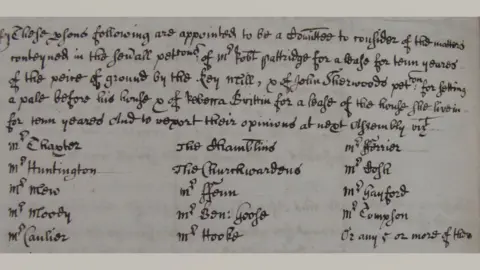 These psons following are appointed to be a Comittee to consider of the matters
conteyned in the seuall petcons of Mr Robt Partridge for a lease for tenn yeares
of the peice of ground by the Key mill, & of John Sherwoods petcon for setting
a pale before his house & of Rebecca Brittin for a lease of the house she live in
for tenn yeares And to report their opinions at next Assembly vizt
Mr Thaxter The Chamblins Mr Fferrier
Mr Huntington The Churchwardens Mr
Mr Mew Mr Ffenn Mr Gayford
Mr Moody Mr Ben: Goose Mr Tompson
Mr Caulier Mr Hooke Or any 5 or more of them